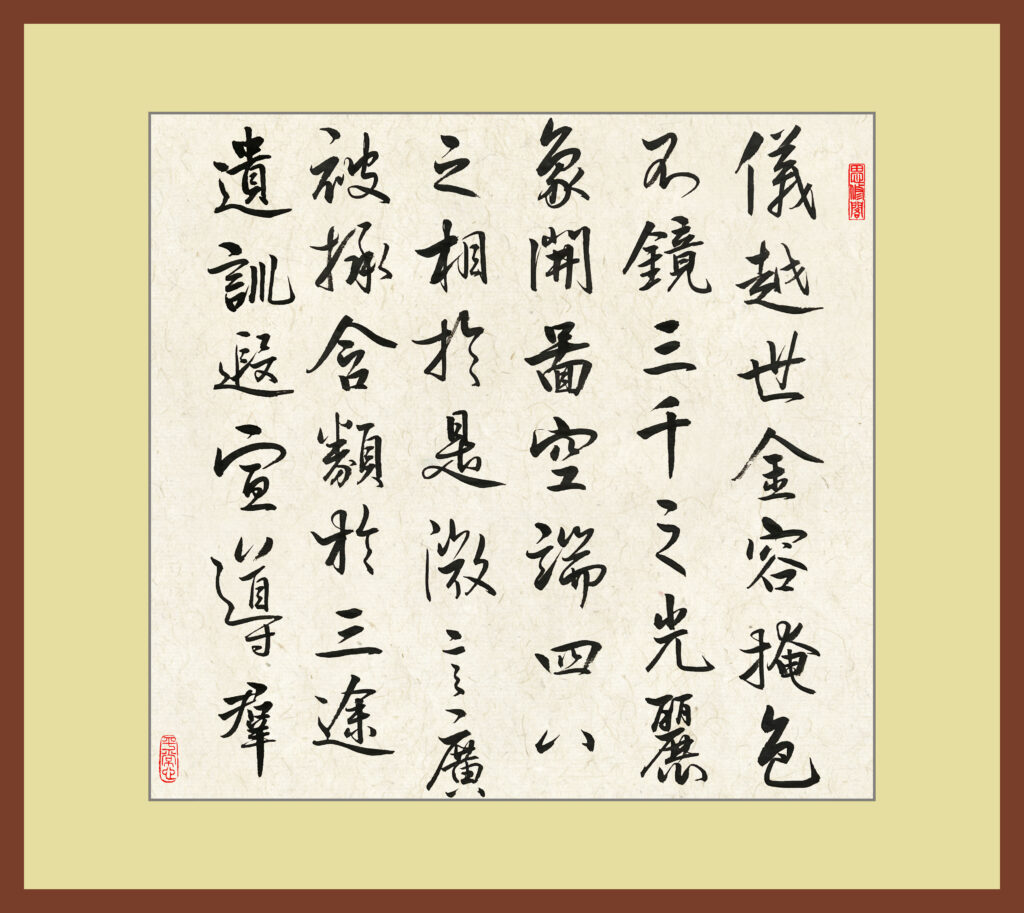 思修閣
儀越世金容掩色
不鏡三千之光麗
象開圖空端四八
之相於是微言廣
被拯含類於三途
遺訓遐宣導羣
平常心